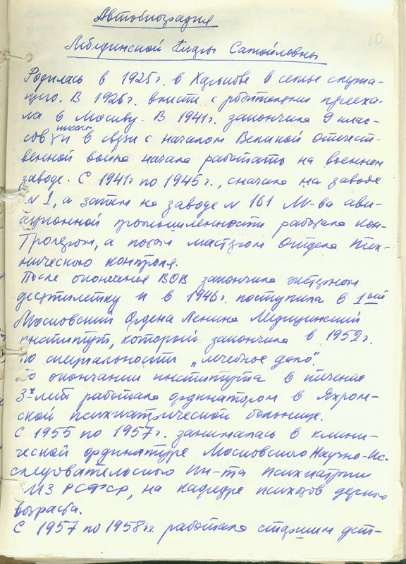 Автобиография
Лебединской Самойловны
Родилась в 1925г. в Харькове в семье служа-
щего. В 1926г. вместе с родителями приеха-
ла в Москву. В 1941г. закончила 9 клас-
сов и в связи с началом Великой Отечест-
венной войны начала работать на военном
заводе. С 1941г по 1945г., сначала на заводе
№ 1, а затем на заводе № 161 М-ва ави-
ационной промышленности работала кон-
тролером, а потом мастером отдела тех-
нического контроля.
После окончания ВОВ закончила экстерном
десятилетку и в 1946г. поступила в 1ый
Московский Ордена Ленина Медицинский
институт, который закончила в 1952г.
по специальности „лечебное дело".
По окончании института в течение
3х лет работала ординатором в Яхром-
ской психиатрической больнице.
С 1955 по 1957г. занималась в клини-
ческой ординатуре Московского Научно-Ис-
следовательского Ин-та Психиатрии
МЗ РСФСР, на кафедре психозов
возраста.
С 1957 по 1958гг работала старшим